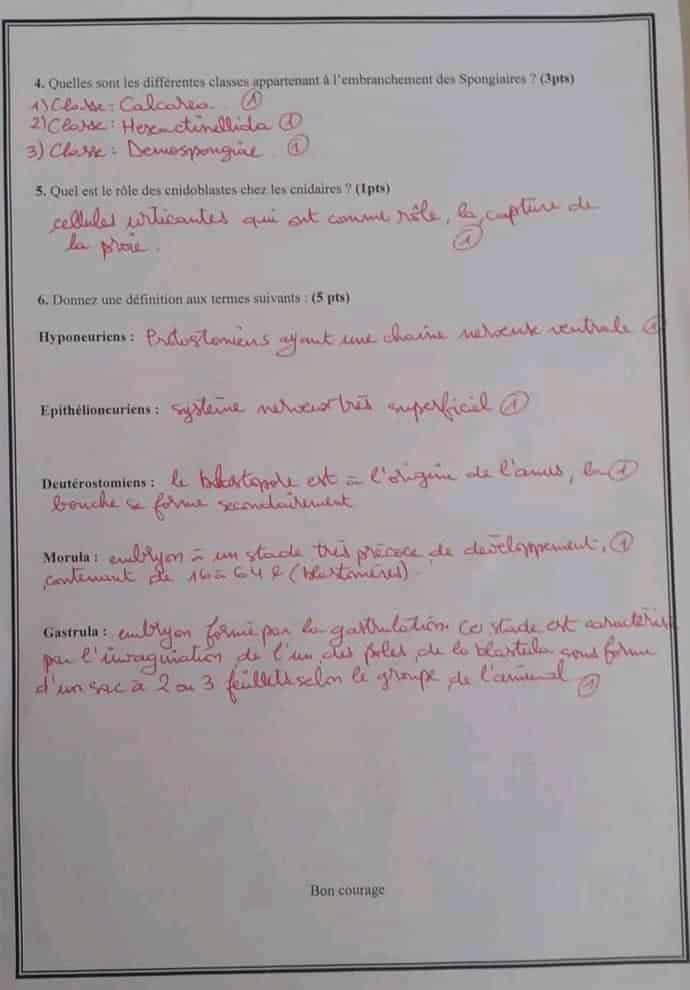 4. Quelles sont les différentes classes appartenant à l'embranchement des Spongiaires ? (3pts)
1) Classe : Calcarea. ①
2) Classe : Hexactinellida ①
3) Classe : Demospongiae ①
5. Quel est le rôle des cnidoblastes chez les cnidaires ? (1pts)
cellules urticantes qui ont comme rôle, la capture de
la proie. ①
6. Donnez une définition aux termes suivants : (5 pts)
Hyponeuriens : Protostomiens ayant une chaine nerveuse ventrale ①
Epithélioneuriens : système nerveux très superficiel ①
Deutérostomiens : le blastopore est à l'origine de l'anus, la ①
bouche se forme secondairement
Morula : embryon à un stade très précoce de développement, ①
contenant de 16 à 64 (blastomères).
Gastrula : embryon formé par la gastrulation. Ce stade est caractéris
par l'invagination de l'un des poles de la blastula sous forme
d'un sac à 2 ou 3 feuillets selon le groupe de l'animal ①
Bon courage